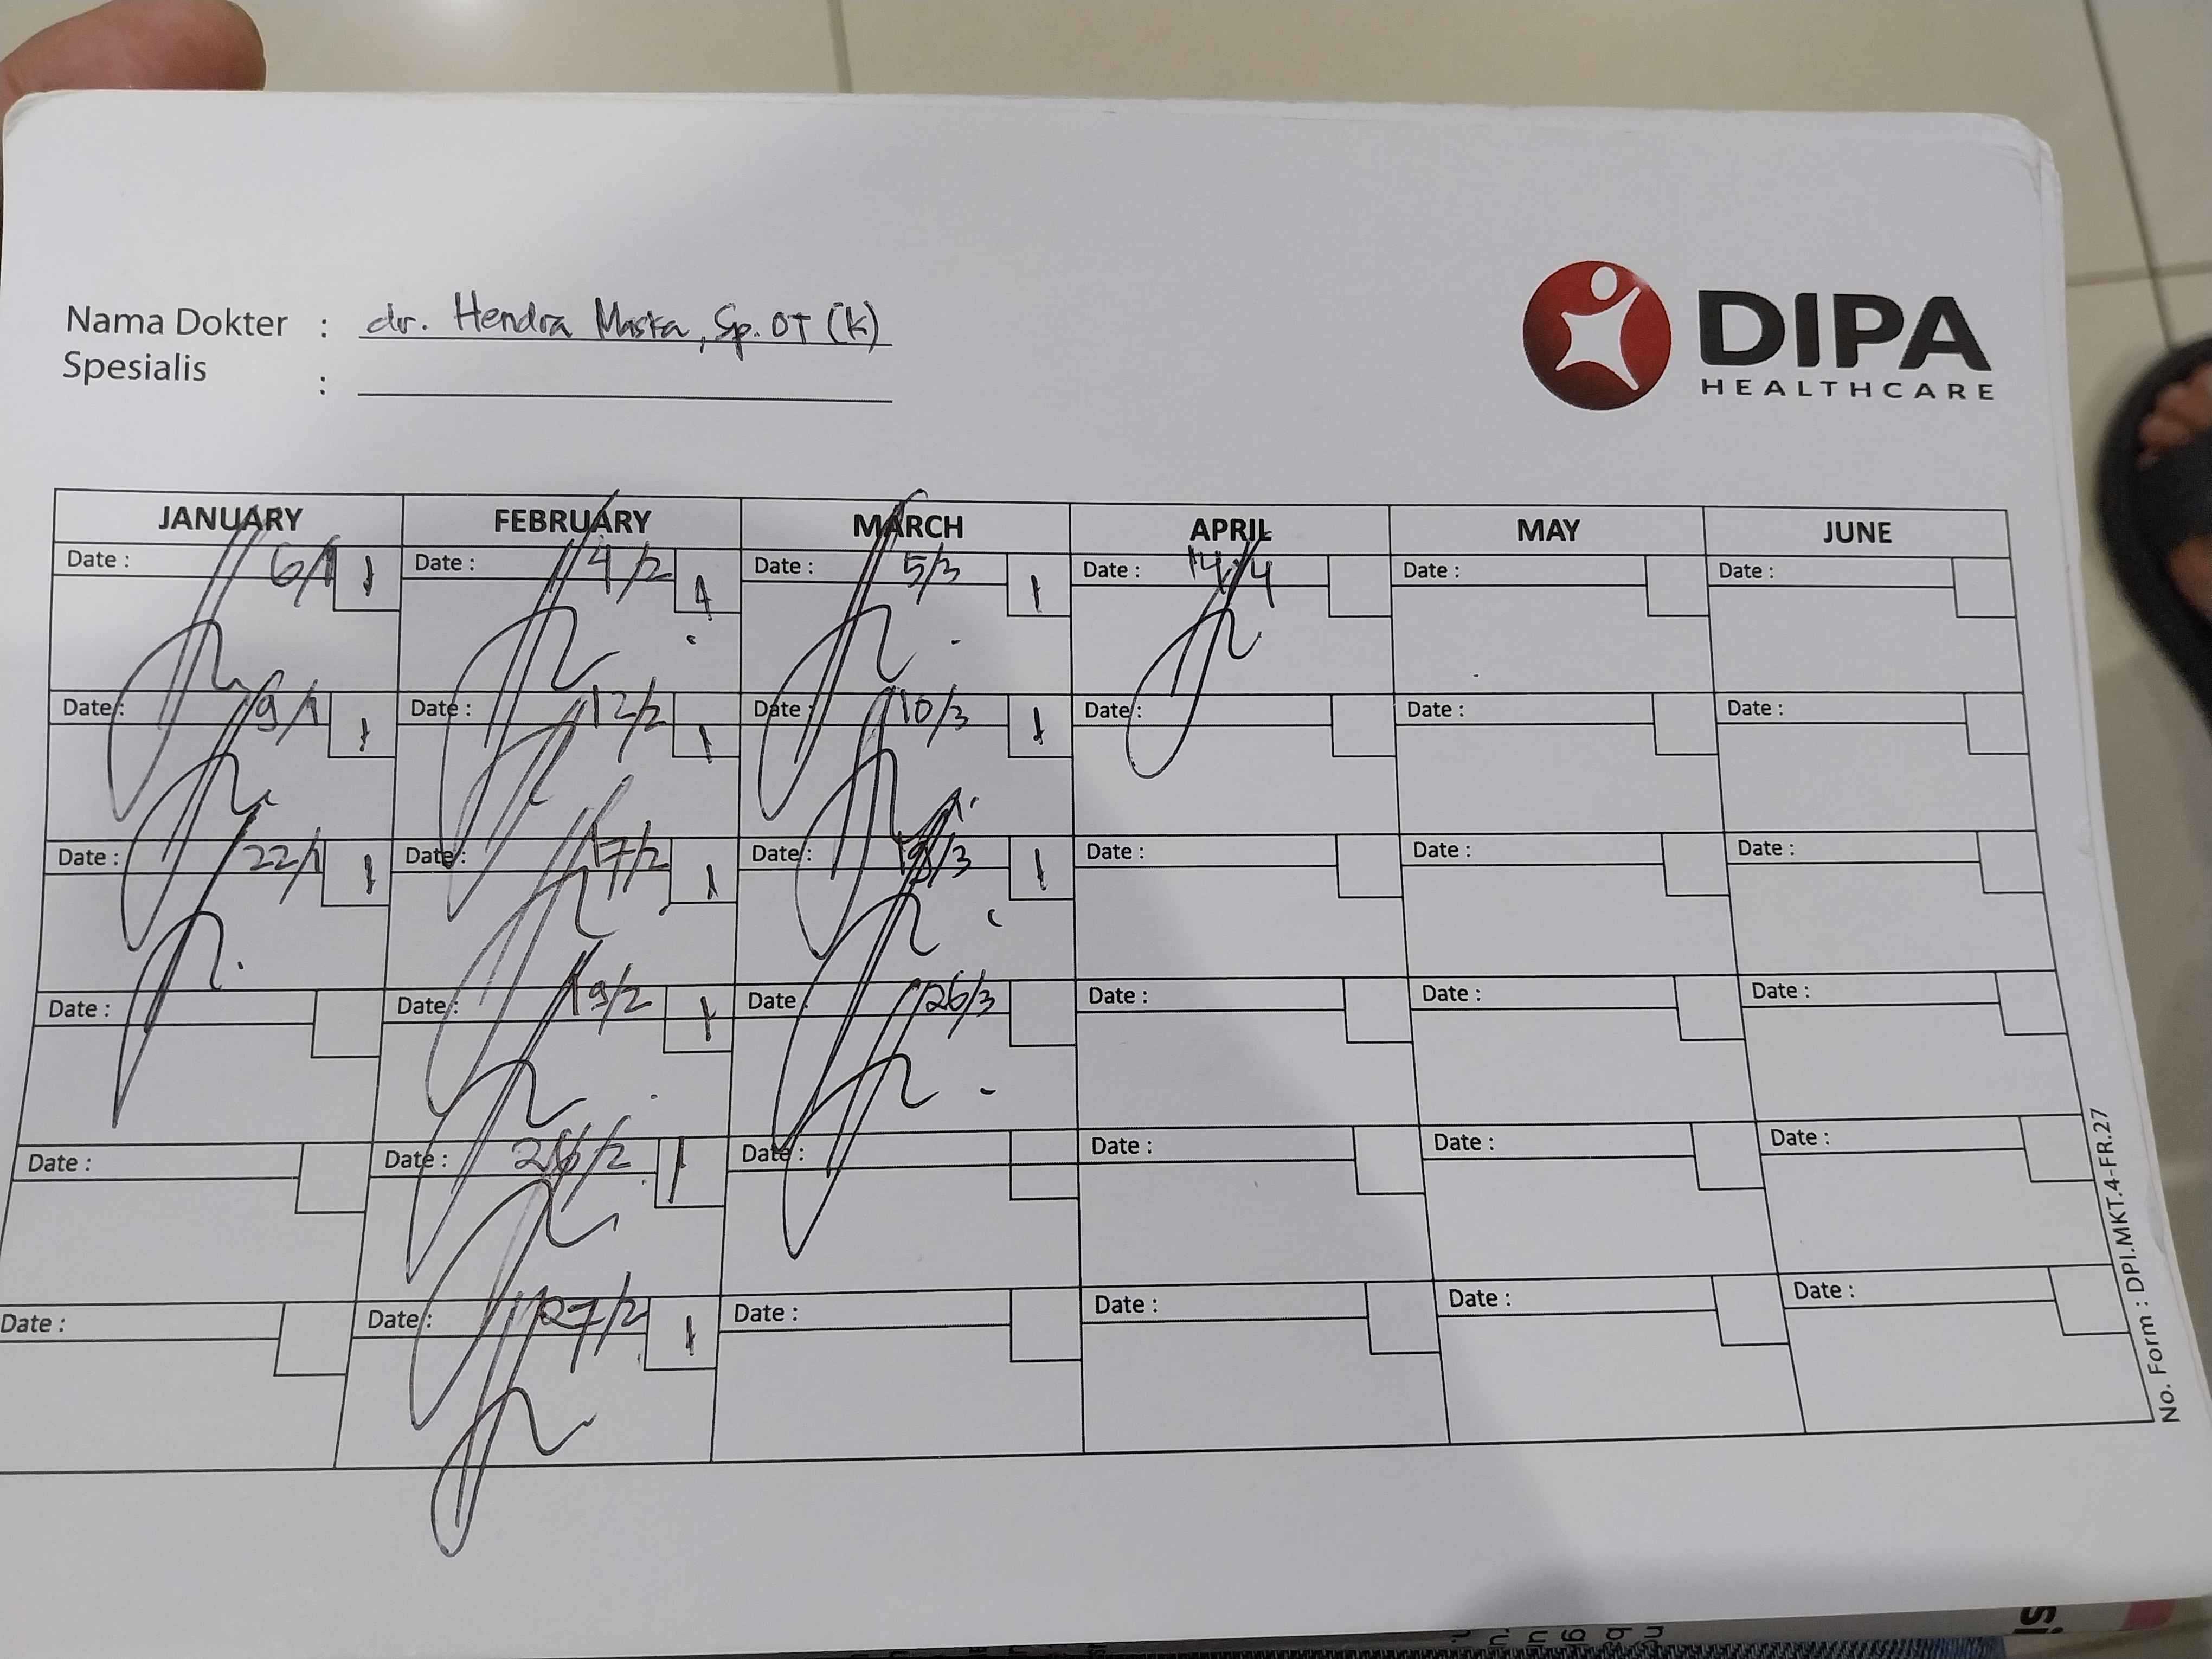 Nama Dokter : dr. Hendra Maska, Sp. OT (K)
Spesialis :
DIPA
HEALTHCARE
JANUARY FEBRUARY MARCH APRIL MAY JUNE
Date : 6/1 1 Date : 4/2 1 Date : 5/3 1 Date : 14/4 Date : Date :
Date : 9/1 1 Date : 12/2 1 Date : 10/3 1 Date : Date : Date :
Date : 22/1 1 Date : 17/2 1 Date : /3 1 Date : Date : Date :
Date : Date : 19/2 1 Date : 26/3 Date : Date : Date :
Date : Date : 26/2 1 Date : Date : Date : Date :
Date : Date : 27/2 1 Date : Date : Date : Date :
No. Form : DPI.MKT.4-FR.27